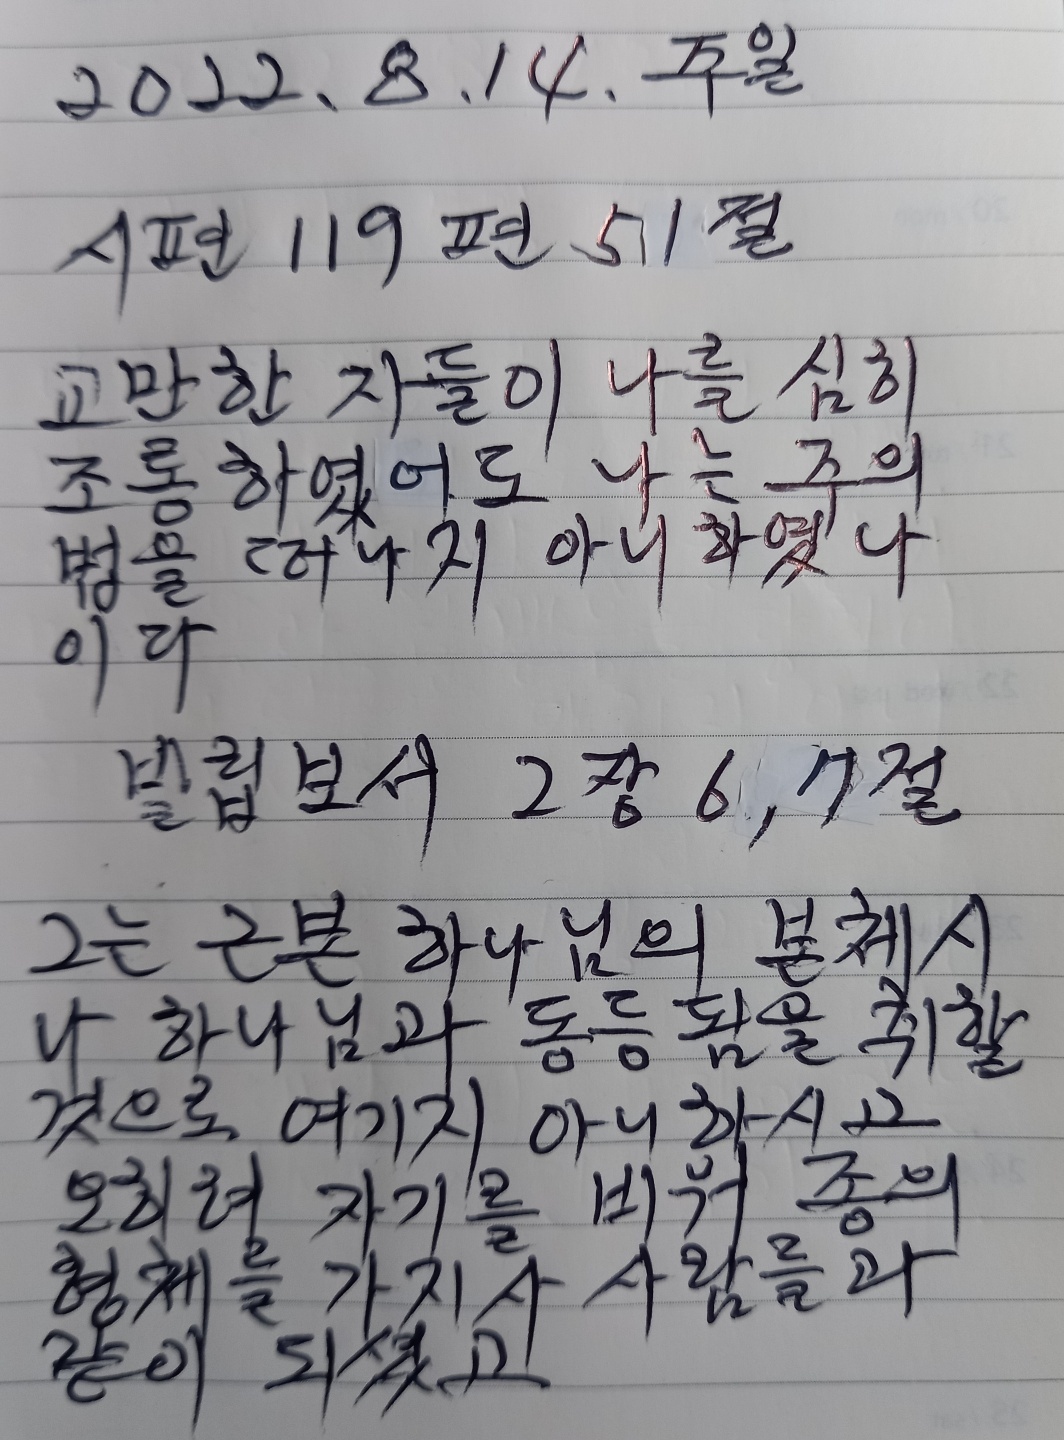 2022. 8. 14. 주일
시편 119 편 51 절
교만한 자들이 나를 심히
조롱하였어도 나는 주의
법을 떠나지 아니하였나
이다
빌립보서 2장 6,7절
그는 근본 하나님의 본체시
나 하나님과 동등됨을 취할
것으로 여기지 아니하시고
오히려 자기를 비워 종의
형체를 가지사 사람들과
같이 되셨고